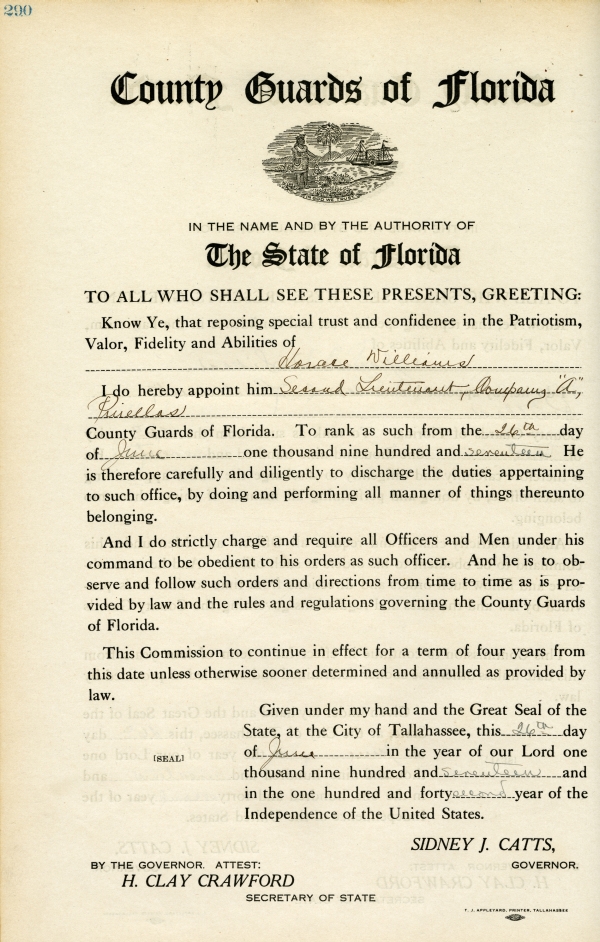 290
County Guards of Florida
IN GOD WE TRUST
IN THE NAME AND BY THE AUTHORITY OF
The State of Florida
TO ALL WHO SHALL SEE THESE PRESENTS, GREETING:
Know Ye, that reposing special trust and confidenee in the Patriotism,
Valor, Fidelity and Abilities of
Horace Williams
I do hereby appoint him Second Lieutenant, Company "A",
Pinellas
County Guards of Florida. To rank as such from the 26th day
of June one thousand nine hundred and seventeen He
is therefore carefully and diligently to discharge the duties appertaining
to such office, by doing and performing all manner of things thereunto
belonging.
And I do strictly charge and require all Officers and Men under his
command to be obedient to his orders as such officer. And he is to ob-
serve and follow such orders and directions from time to time as is pro-
vided by law and the rules and regulations governing the County Guards
of Florida.
This Commission to continue in effect for a term of four years from
this date unless otherwise sooner determined and annulled as provided by
law.
Given under my hand and the Great Seal of the
State, at the City of Tallahassee, this 26th day
of June in the year of our Lord one
[SEAL]
thousand nine hundred and seventeen and
in the one hundred and forty second year of the
Independence of the United States.
SIDNEY J. CATTS,
GOVERNOR.
BY THE GOVERNOR. ATTEST:
H. CLAY CRAWFORD
SECRETARY OF STATE
T. J. APPLEYARD, PRINTER, TALLAHASSEE